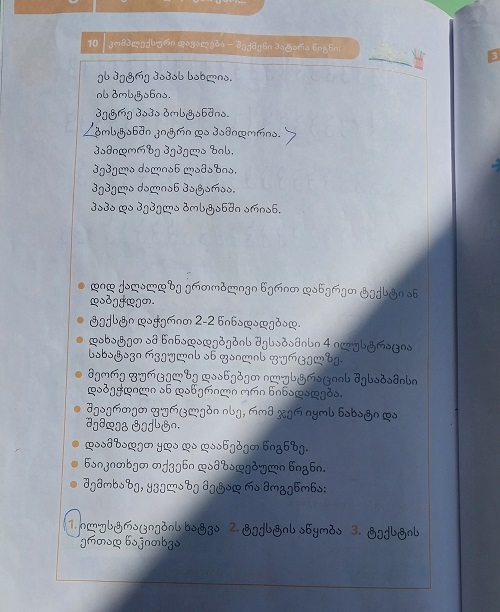 10 კომპლექსური დავალება – შექმენი პატარა წიგნი
ეს პეტრე პაპას სახლია.
ის ბოსტანია.
პეტრე პაპა ბოსტანშია.
ბოსტანში კიტრი და პამიდორია.
პამიდორზე პეპელა ზის.
პეპელა ძალიან ლამაზია.
პეპელა ძალიან პატარაა.
პაპა და პეპელა ბოსტანში არიან.
• დიდ ქაღალდზე ერთობლივი წერით დაწერეთ ტექსტი ან
დაბეჭდეთ.
• ტექსტი დაჭერით 2-2 წინადადებად.
• დახატეთ ამ წინადადებების შესაბამისი 4 ილუსტრაცია
სახატავი რვეულის ან ფაილის ფურცელზე.
• მეორე ფურცელზე დააწებეთ ილუსტრაციის შესაბამისი
დაბეჭდილი ან დაწერილი ორი წინადადება.
• შეაერთეთ ფურცლები ისე, რომ ჯერ იყოს ნახატი და
შემდეგ ტექსტი.
• დაამზადეთ ყდა და დააწებეთ წიგნზე.
• წაიკითხეთ თქვენი დამზადებული წიგნი.
• შემოხაზე, ყველაზე მეტად რა მოგეწონა:
1. ილუსტრაციების ხატვა 2. ტექსტის აწყობა 3. ტექსტის
ერთად წაკითხვა
3